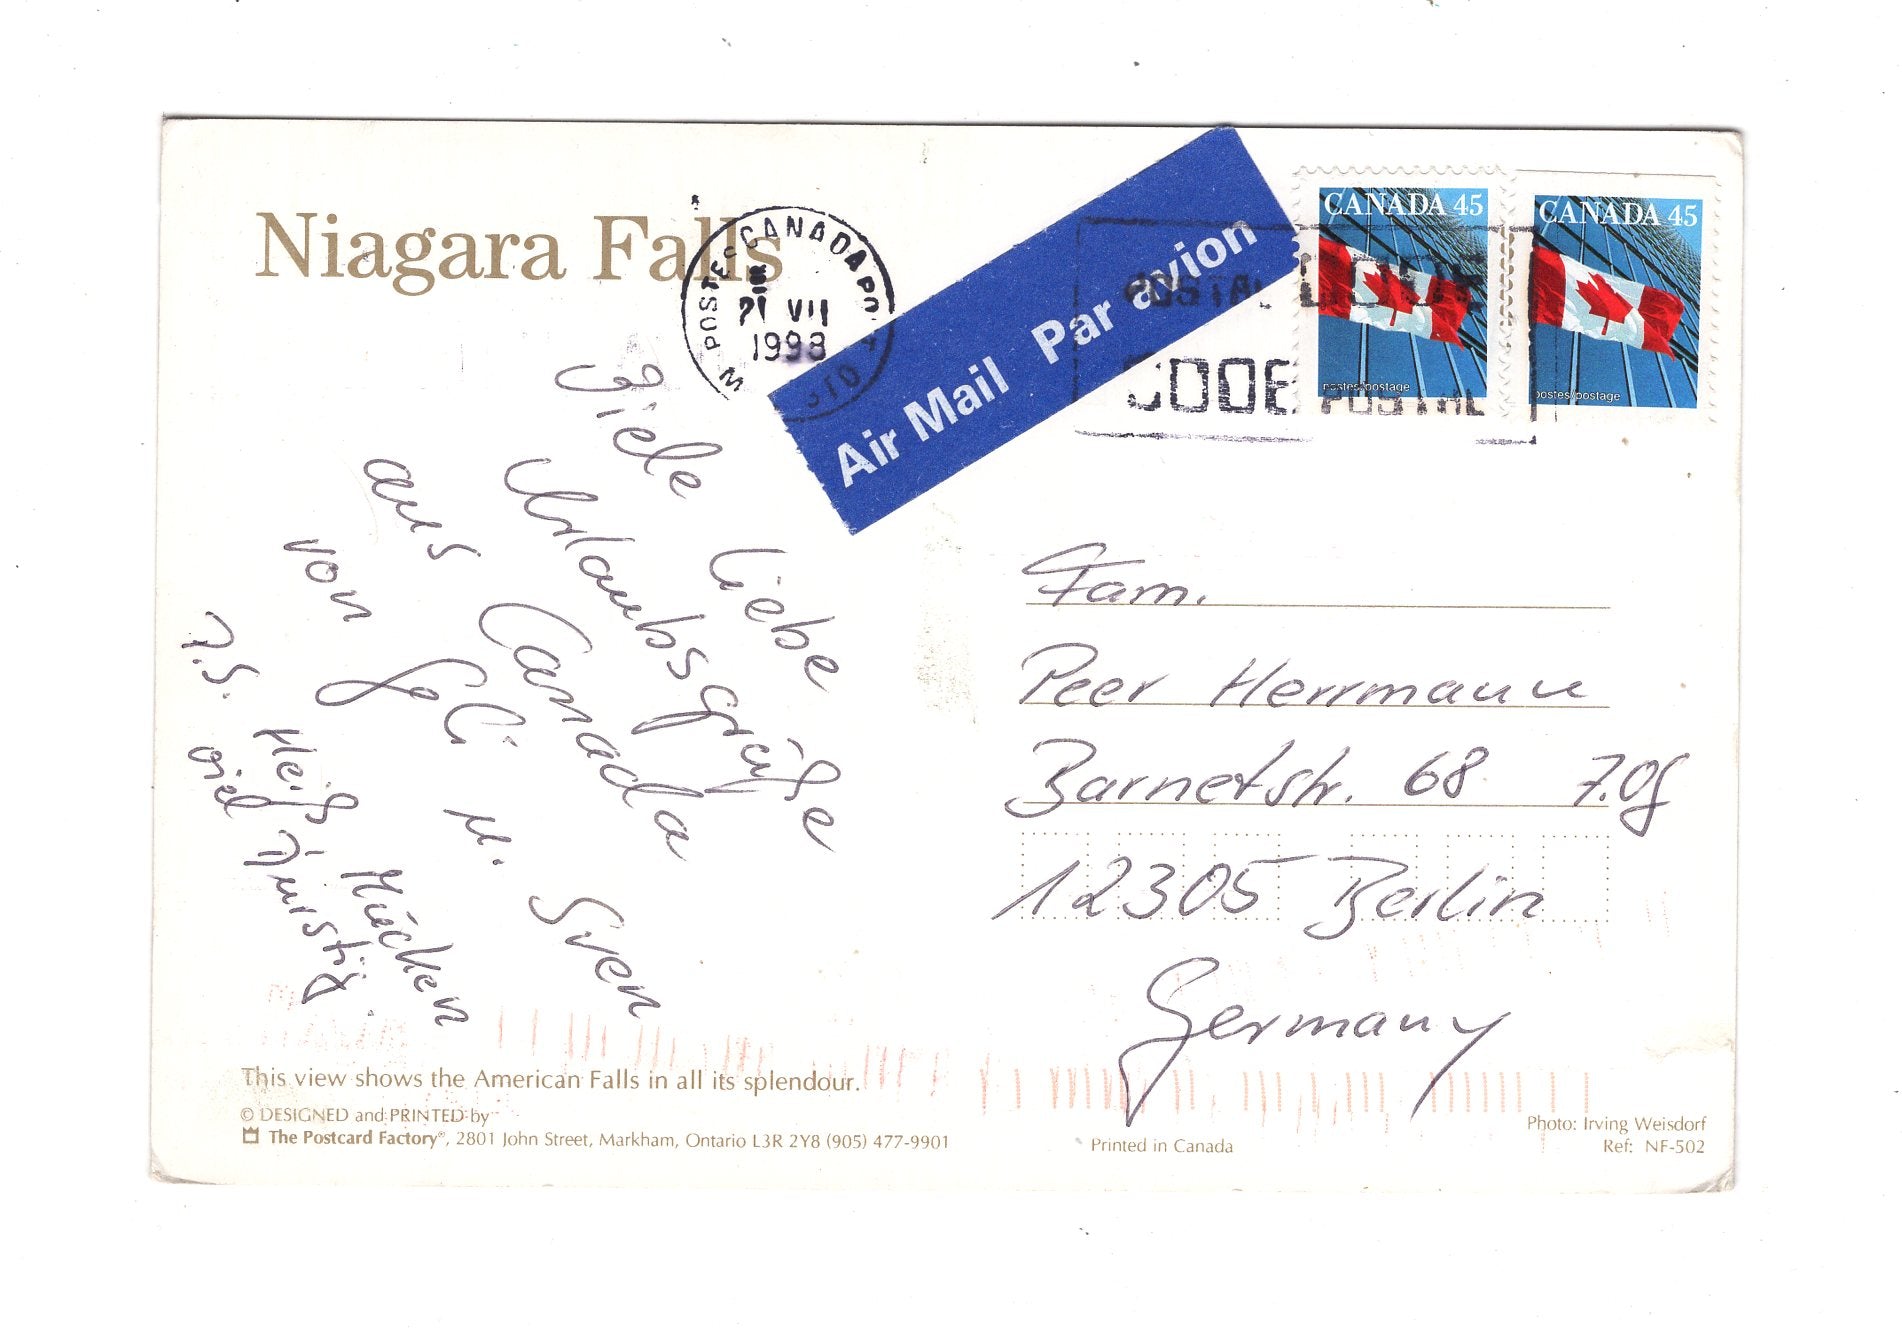 Niagara Falls
POSTES CANADA POST
21 VII
1998
Air Mail Par avion
POSTAL CODE
CODE POSTAL
CANADA 45
postes/postage
CANADA 45
postes/postage
Viele liebe
Urlaubsgrüße
aus Canada
von Geli u. Sven
P.S. Heiß, Mücken
viel Durstig
Fam.
Peer Herrmann
Barnetstr. 68 7.OG
12305 Berlin
Germany
This view shows the American Falls in all its splendour.
© DESIGNED and PRINTED by
The Postcard Factory®, 2801 John Street, Markham, Ontario L3R 2Y8 (905) 477-9901
Printed in Canada
Photo: Irving Weisdorf
Ref: NF-502